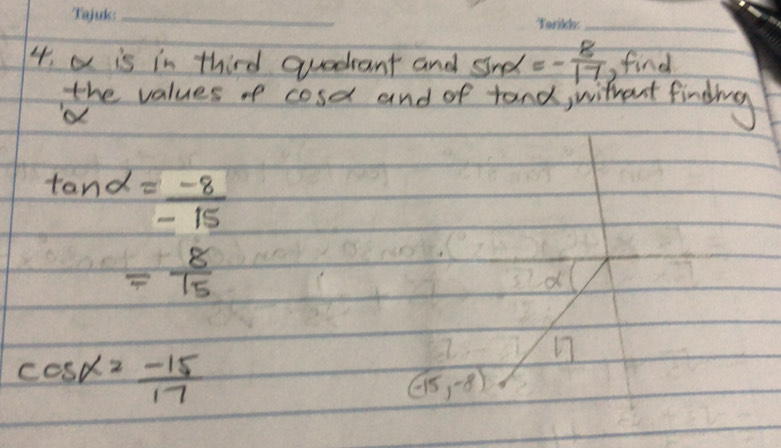 Tajuk: Tarikh:
4. α is in third quadrant and sinα = -8/17, find
the values of cosα and of tanα, without finding
α
tanα = -8/-15
= 8/15
α
17
cosα = -15/17
(-15, -8)